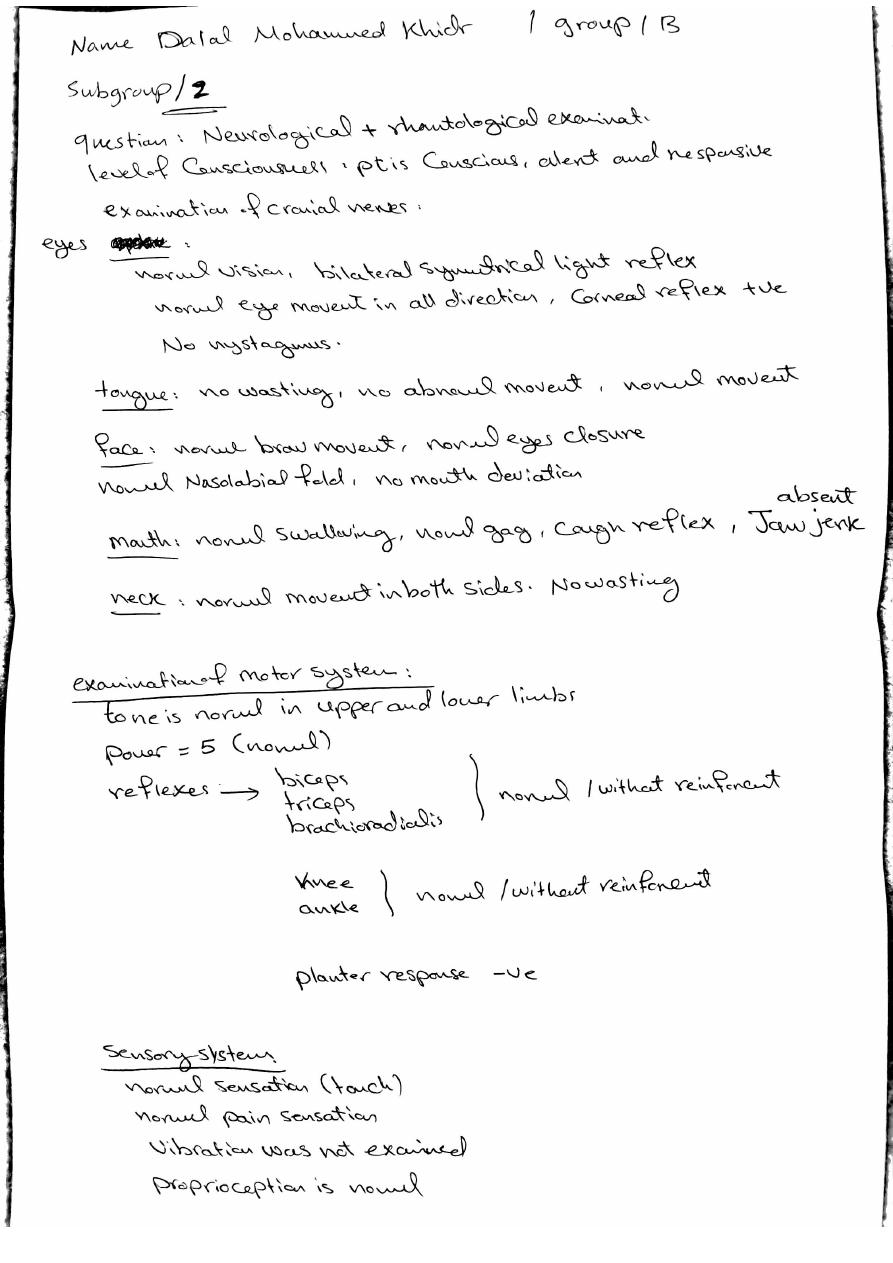 Name Dalal Mohammed Khidr / group / B
Subgroup / 2
question : Neurological + rhautological examinat.
level of Consciousness : pt is Conscious, alert and responsive
examination of cranial nerves :
eyes :
normal vision, bilateral symmetrical light reflex
normal eye movent in all direction, Corneal reflex +ve
No nystagmus.
tongue : no wasting, no abnormal movent, normal movent
face : normal brow movent, normal eyes closure
normal Nasolabial fold, no mouth deviation
absent
mouth : normal swallowing, normal gag, cough reflex, Jaw jerk
neck : normal movent in both sides. No wasting
examination of motor system :
tone is normal in upper and lower limbs
power = 5 (normal)
reflexes → biceps
triceps
brachioradialis
} normal / without reinforcent
knee
ankle
} normal / without reinforcent
planter response -ve
Sensory system
normal sensation (touch)
normal pain sensation
vibration was not examined
proprioception is normal